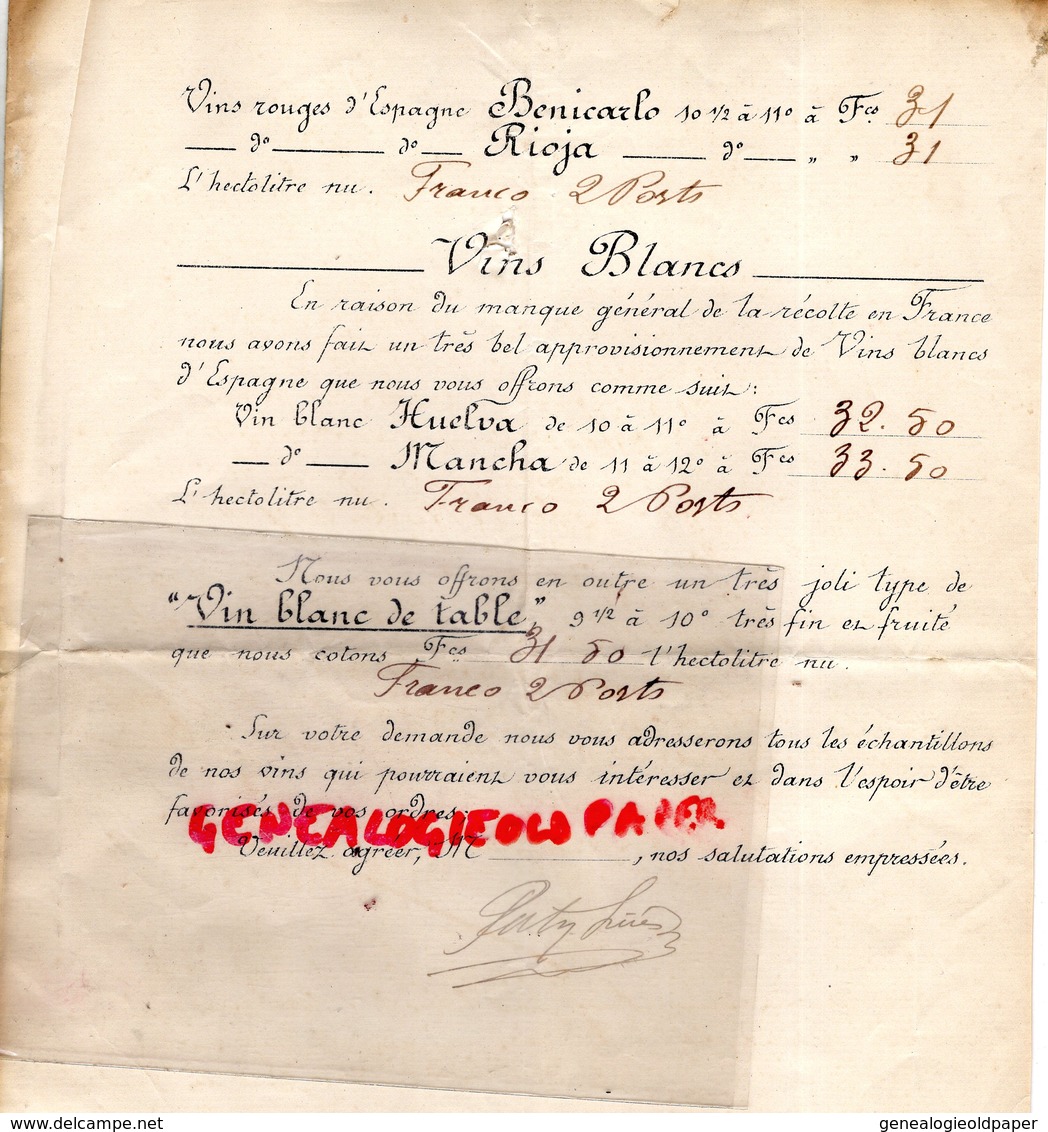 Vins rouges d'Espagne Benicarlo 10 1/2 à 11° à Fcs 31
— d° — d° — Rioja — d° — „ „ 31
L'hectolitre nu. Franco 2 Ports
Vins Blancs
En raison du manque général de la récolte en France
nous avons fait un très bel approvisionnement de Vins blancs
d'Espagne que nous vous offrons comme suit :
Vin blanc Huelva de 10 à 11° à Fcs 32.50
— d° — Mancha de 11 à 12° à Fcs 33.50
L'hectolitre nu. Franco 2 Ports
Nous vous offrons en outre un très joli type de
"Vin blanc de table", 9 1/2 à 10° très fin et fruité
que nous cotons Fcs 31 50 l'hectolitre nu.
Franco 2 Ports
Sur votre demande nous vous adresserons tous les échantillons
de nos vins qui pourraient vous intéresser et dans l'espoir d'être
favorisés de vos ordres.
GENEALOGIEOLD PAPER
Veuillez agréer, M , nos salutations empressées.
frères
delcampe.net
genealogieoldpaper